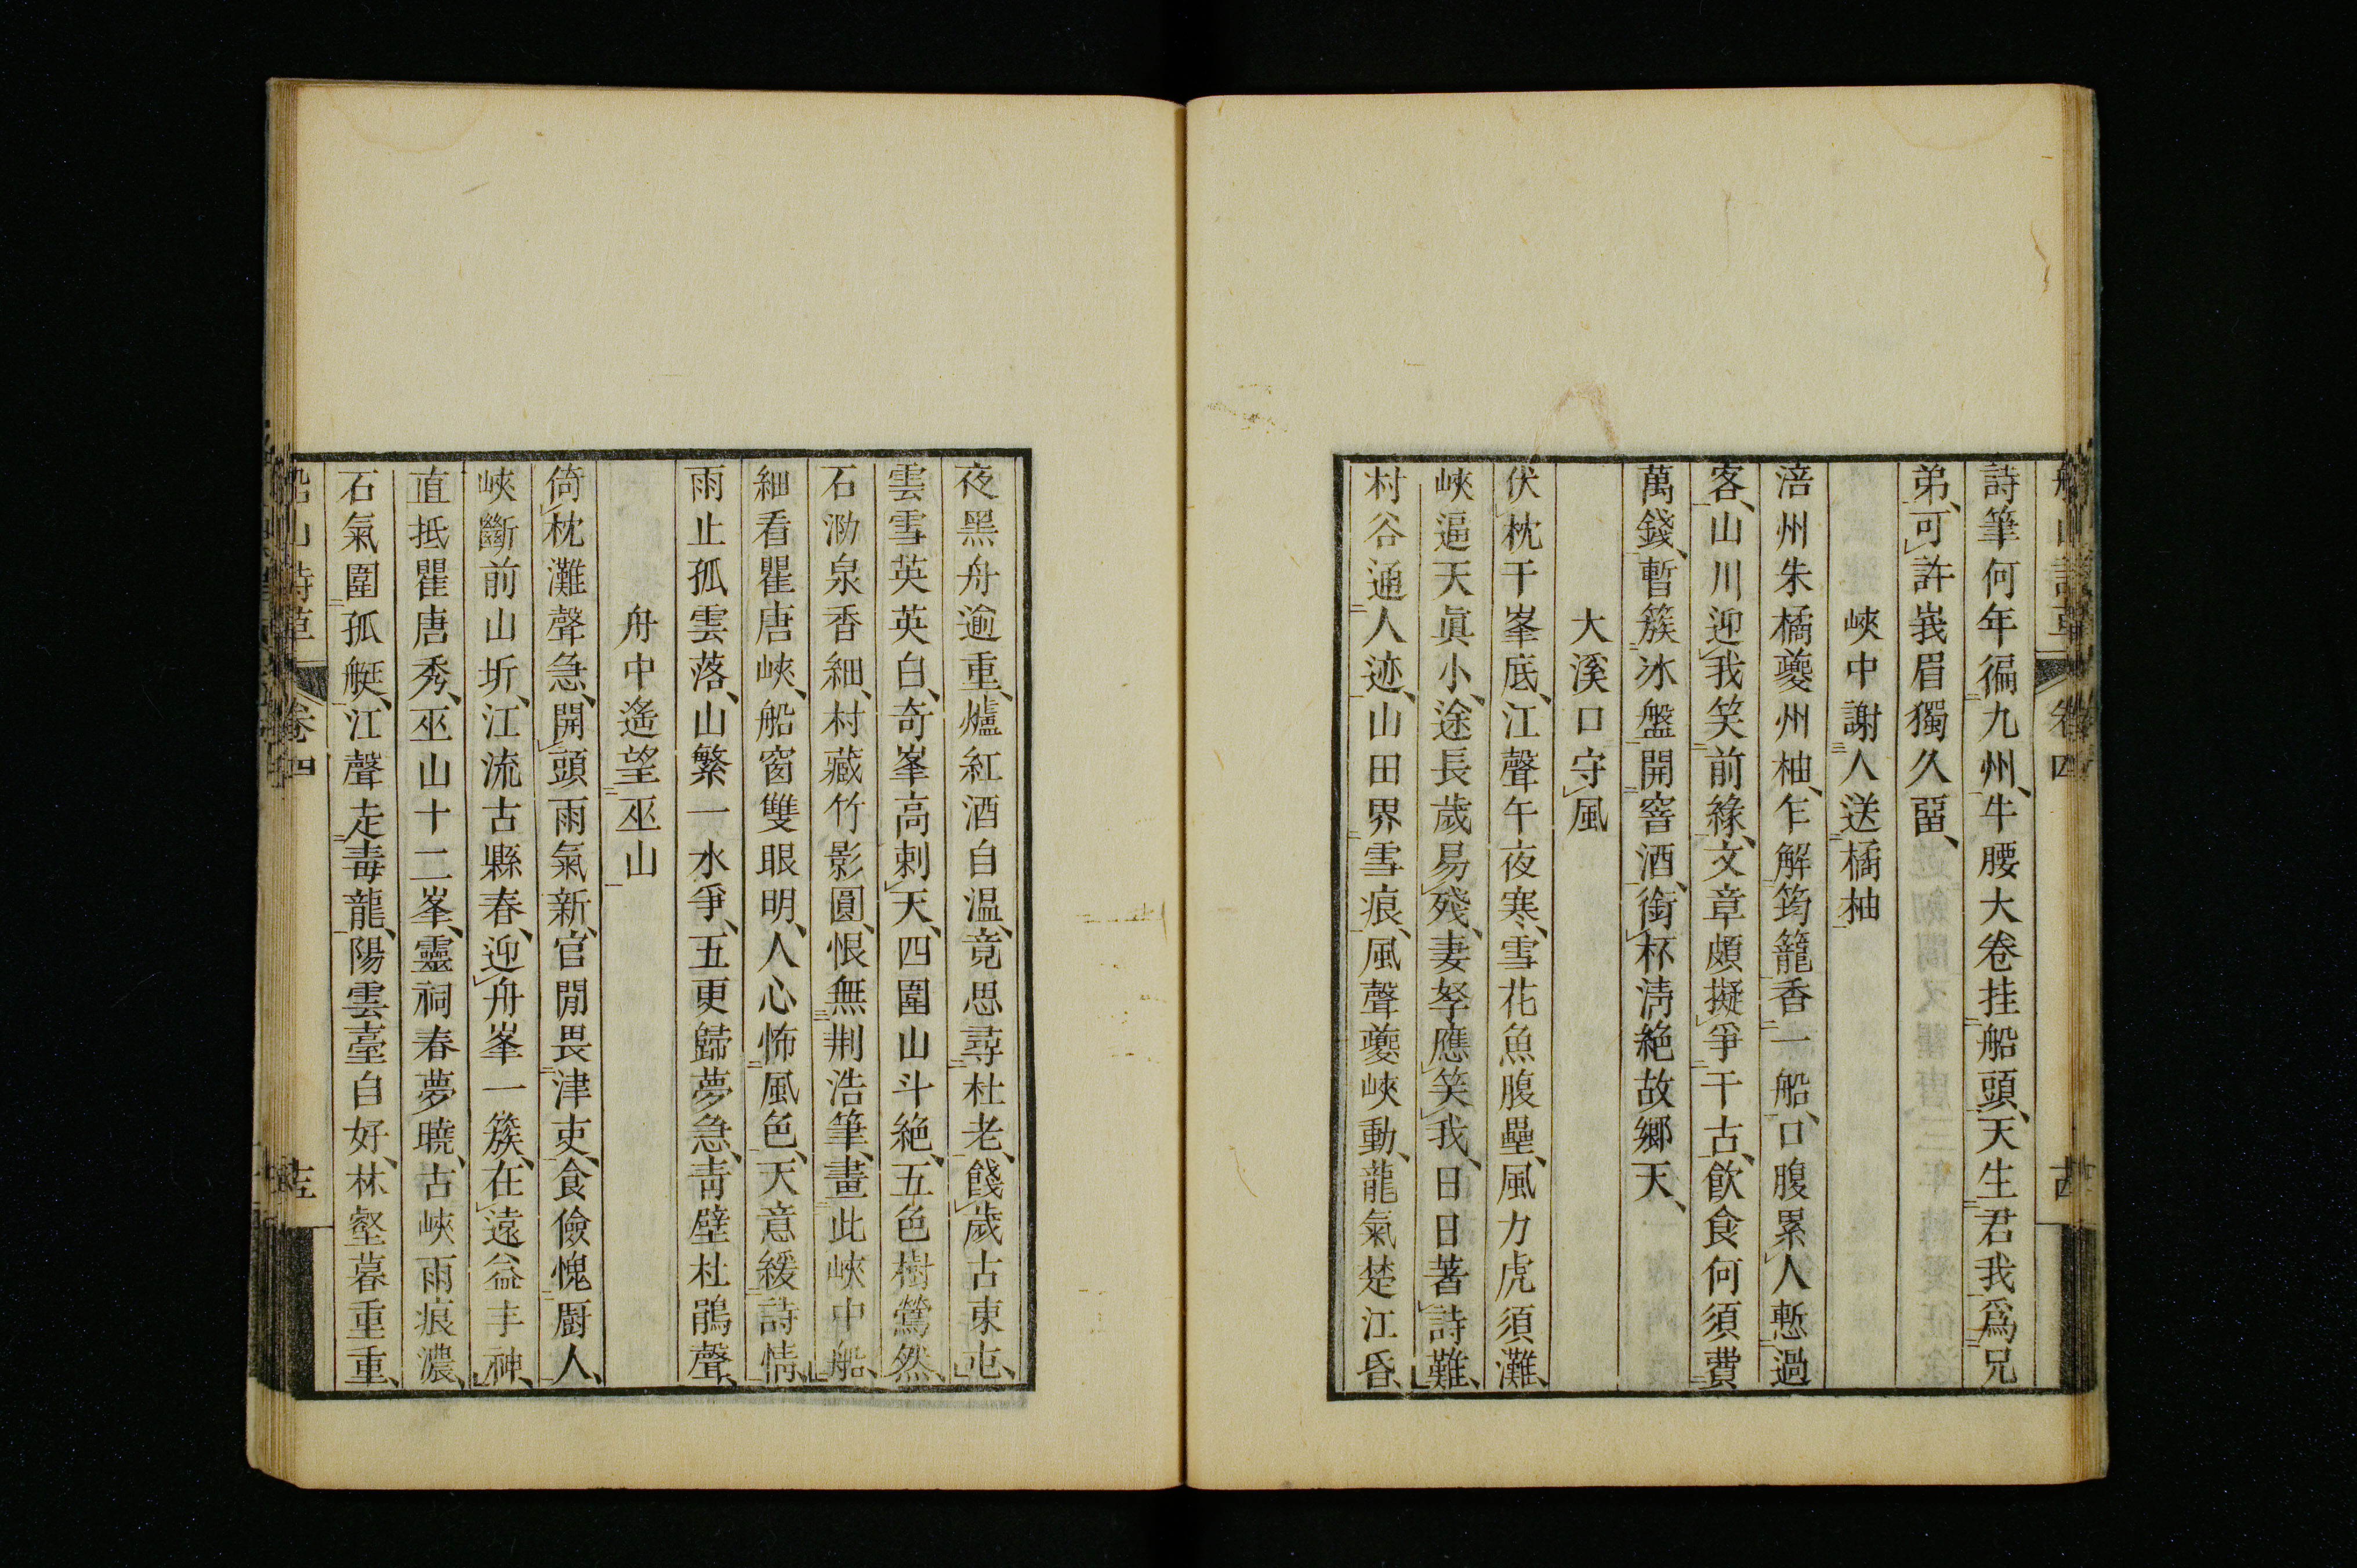 船山詩草 卷四 十四
詩筆何年徧九州、牛腰大卷挂船頭、天生君我爲兄
弟、可許峩眉獨久畱、
峽中謝人送橘柚
涪州朱橘夔州柚、乍解筠籠香一船、口腹累人慙過
客、山川迎我笑前緣、文章頗擬爭千古、飲食何須費
萬錢、暫簇冰盤開窖酒、銜杯淸絶故鄉天、
大溪口守風
伏枕千峯底、江聲午夜寒、雪花魚腹壘、風力虎須灘、
峽逼天眞小、途長歲易殘、妻孥應笑我、日日著詩難、
村谷通人迹、山田界雪痕、風聲夔峽動、龍氣楚江昏、
夜黑舟逾重、爐紅酒自温、竟思尋杜老、餞歲古東屯、
雲雪英英白、奇峯高刺天、四圍山斗絶、五色樹鶯然、
石泐泉香細、村藏竹影圓、恨無荆浩筆、畫此峽中船、
細看瞿唐峽、船窗雙眼明、人心怖風色、天意緩詩情、
雨止孤雲落、山繁一水爭、五更歸夢急、靑壁杜鵑聲、
舟中遙望巫山
倚枕灘聲急、開頭雨氣新、官閒畏津吏、食儉愧厨人、
峽斷前山圻、江流古縣春、迎舟峯一簇、在遠益丰神、
直抵瞿唐秀、巫山十二峯、靈祠春夢曉、古峽雨痕濃、
石氣圍孤艇、江聲走毒龍、陽雲臺自好、林壑暮重重、
船山詩草 卷四 十五